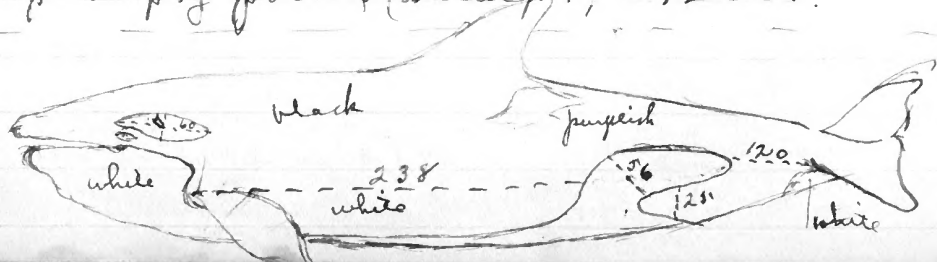 black
60
purplish
white
238
white
56
28
120
white